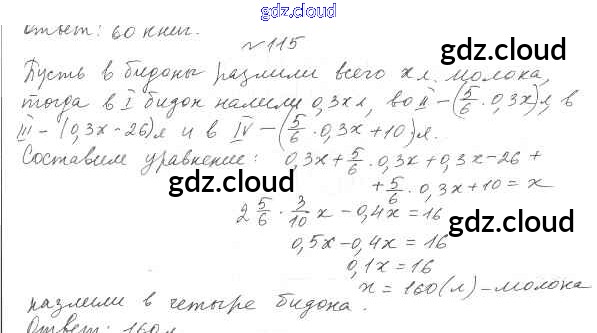 gdz.cloud
Ответ: 60 книг.
gdz.cloud
№115
Пусть в бидоны разлили всего x л. молока,
тогда в I бидон налили 0,3x л, во II – (5/6 · 0,3x) л, в
III – (0,3x – 26) л и в IV – (5/6 · 0,3x + 10) л.
Составим уравнение: 0,3x + 5/6 · 0,3x + 0,3x – 26 +
+ 5/6 · 0,3x + 10 = x
gdz.cloud
gdz.cloud
2 5/6 · 3/10 x – 0,4x = 16
gdz.cloud
0,5x – 0,4x = 16
0,1x = 16
x = 160 (л) – молока
разлили в четыре бидона.
Ответ: 160 л